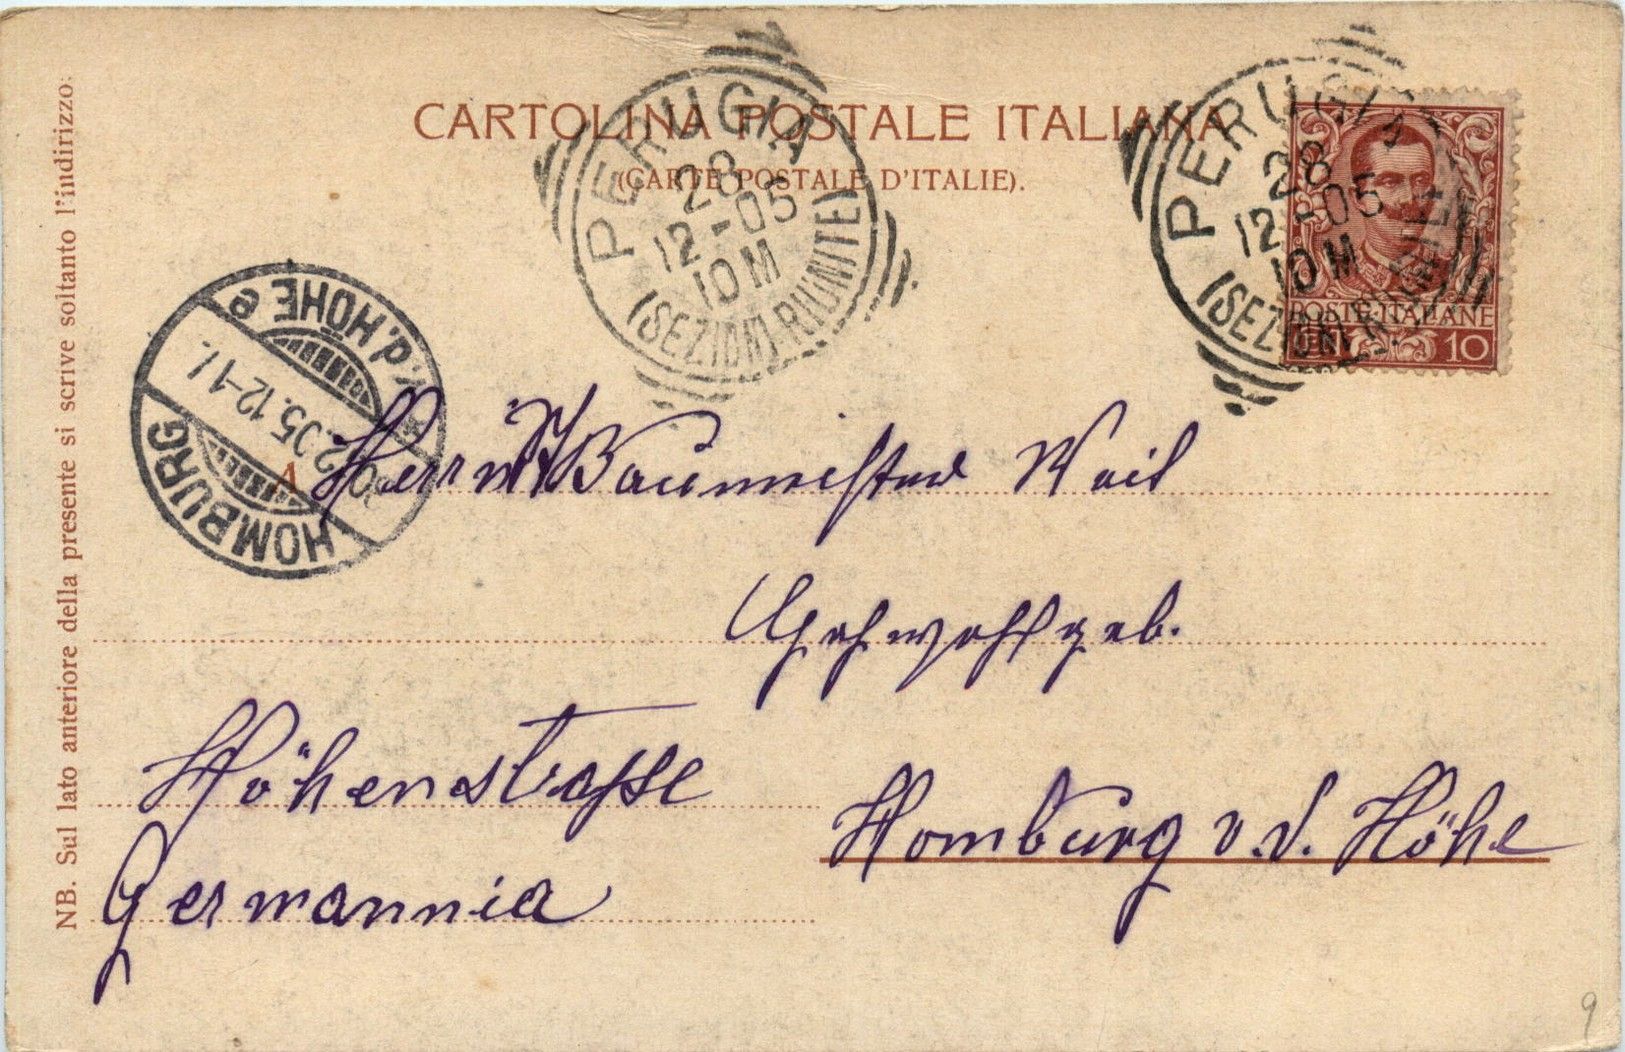 CARTOLINA POSTALE ITALIANA
(CARTE POSTALE D'ITALIE).
PERUGIA
28
12-05
10 M
(SEZIONI RIUNITE)
PERUGIA
28
12-05
10 M
(SEZIONI RIUNITE)
POSTE ITALIANE
CENT. 10
HOMBURG
v.d. HÖHE e
2.05.12-1
NB. Sul lato anteriore della presente si scrive soltanto l'indirizzo:
A Herrn Baumeister Weil
Hochwohlgeb.
Höhenstrasse
Homburg v. d. Höhe
Germannia
9